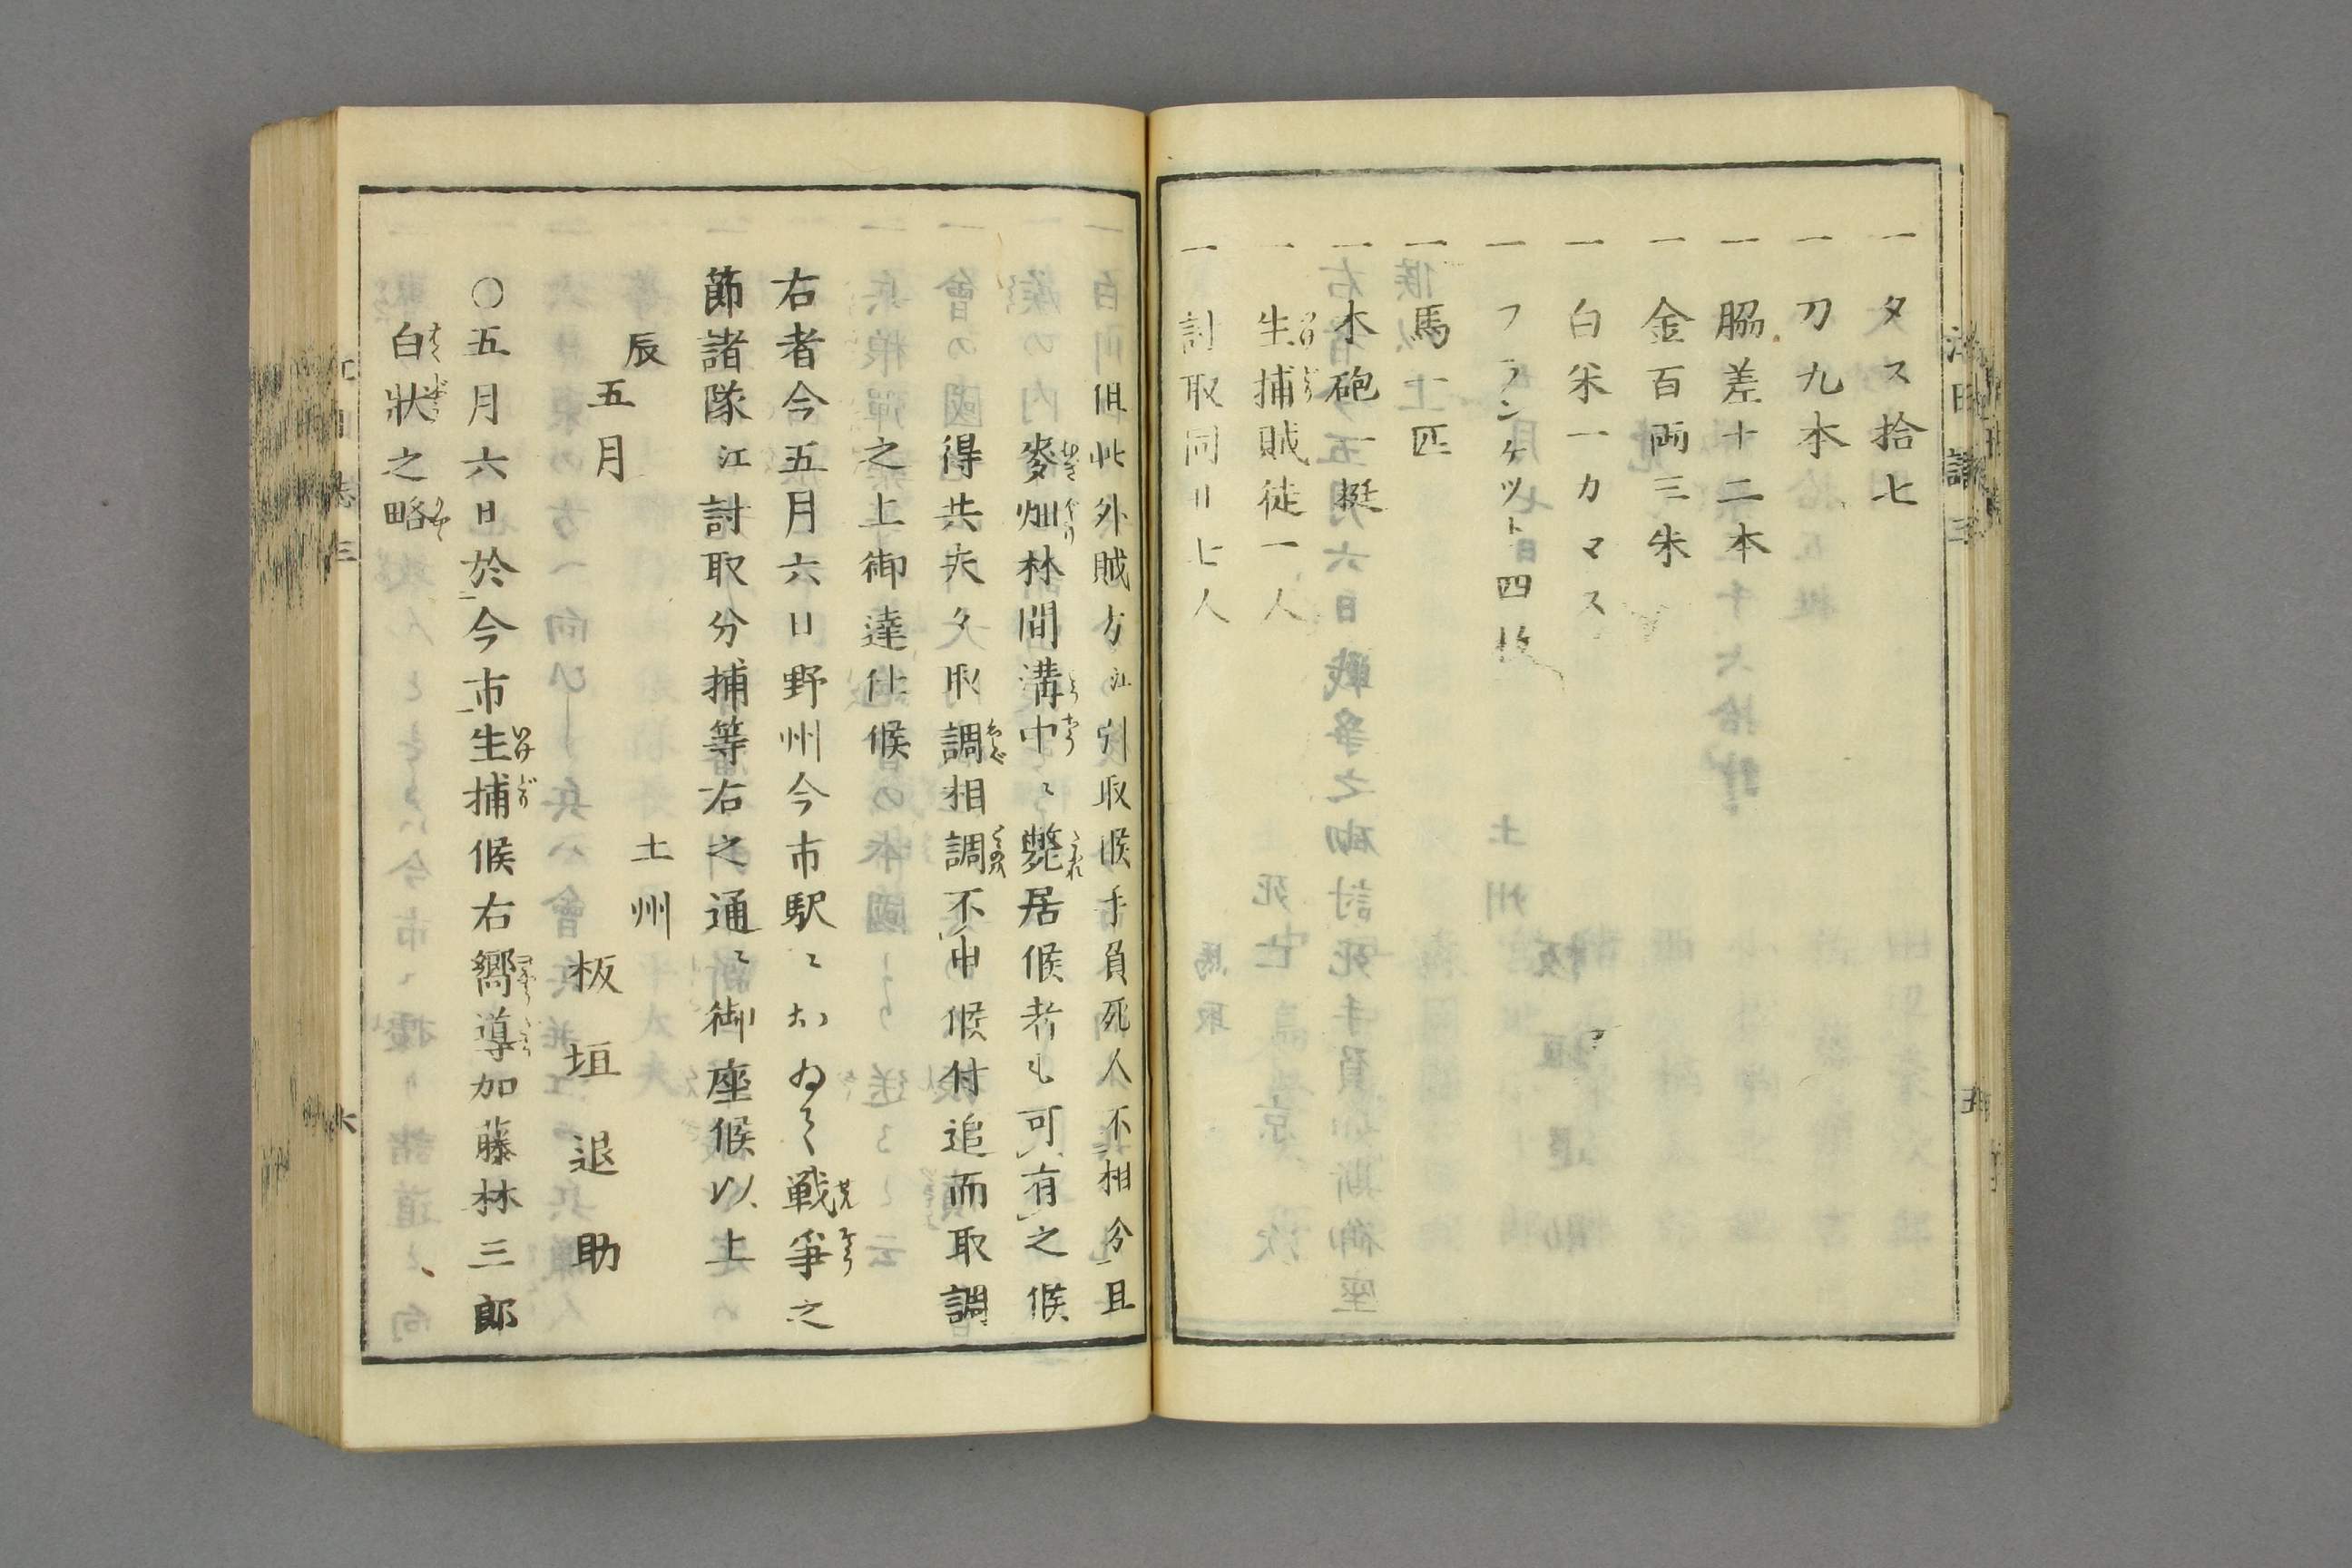 一 タス拾七
一 刀九本
一 脇差十二本
一 金百両三朱
一 白米一カマス
一 フランケツト四枚
一 馬一匹
一 木砲一挺
一 生捕賊徒一人
一 討取同廿七人
但此外賊方江引取候手負死人不相分且
麥畑林間溝中ニ斃居候者も可有之候
得共夫々取調相調不申候付追而取調
之上御達仕候
右者今五月六日野州今市駅ニおゐて戦争之
節諸隊江討取分捕等右之通ニ御座候以上
辰
五月
土州
板垣退助
〇五月六日於今市生捕候右嚮導加藤林三郎
白状之略